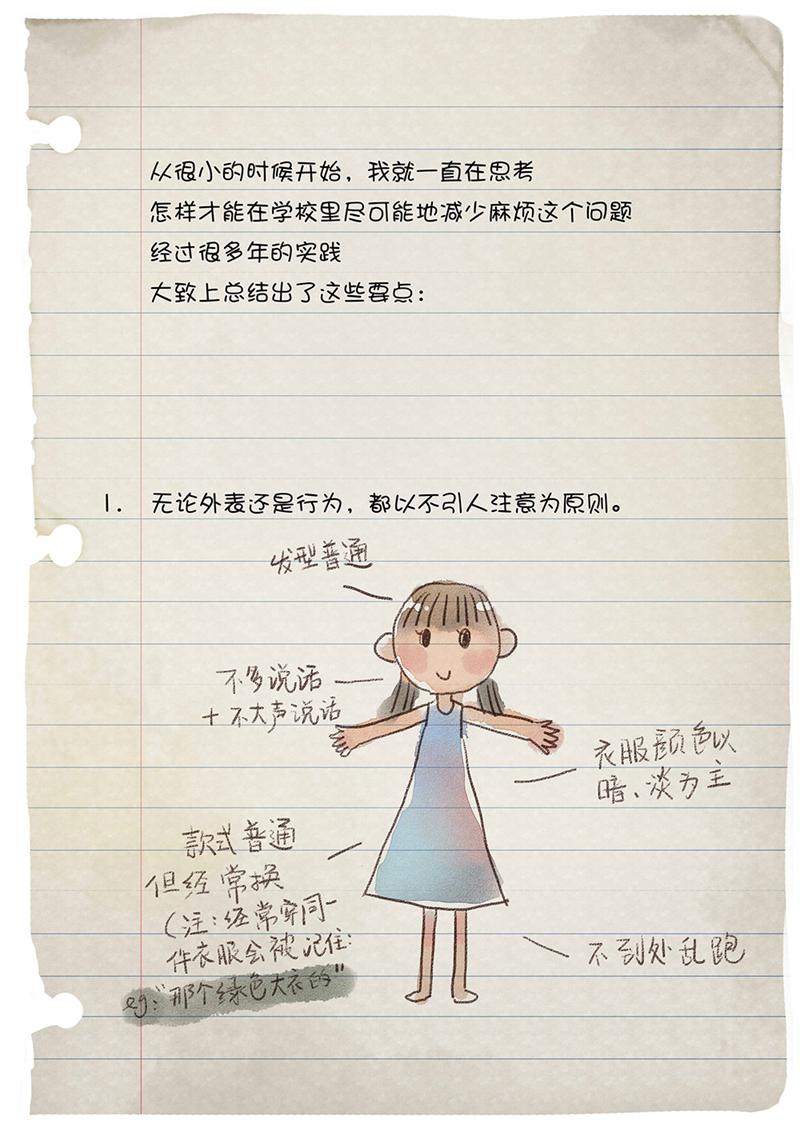 从很小的时候开始，我就一直在思考
怎样才能在学校里尽可能地减少麻烦这个问题
经过很多年的实践
大致上总结出了这些要点：
1. 无论外表还是行为，都以不引人注意为原则。
发型普通
不多说话
+不大声说话
衣服颜色以
暗、淡为主
款式普通
但经常换
（注：经常穿同一
件衣服会被记住：
eg："那个绿色大衣的"
不到处乱跑